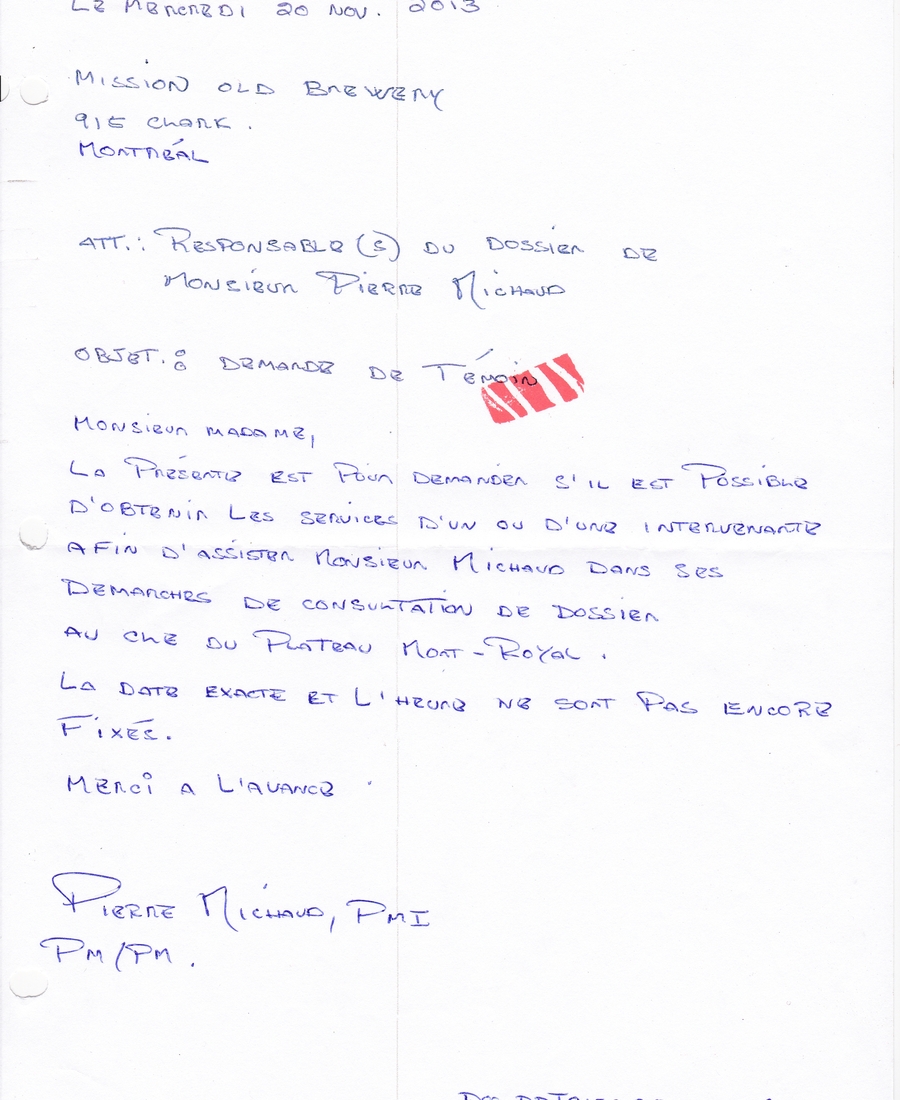 LE MERCREDI 20 NOV. 2013
MISSION OLD BREWERY
915 CLARK.
MONTRÉAL
ATT.: RESPONSABLE(S) DU DOSSIER DE
MONSIEUR PIERRE MICHAUD
OBJET.: DEMANDE DE TÉMOIN
MONSIEUR MADAME,
LA PRÉSENTE EST POUR DEMANDER S'IL EST POSSIBLE
D'OBTENIR LES SERVICES D'UN OU D'UNE INTERVENANTE
AFIN D'ASSISTER MONSIEUR MICHAUD DANS SES
DEMARCHES DE CONSULTATION DE DOSSIER
AU CLE DU PLATEAU MONT-ROYAL.
LA DATE EXACTE ET L'HEURE NE SONT PAS ENCORE
FIXÉS.
MERCI A L'AVANCE
PIERRE MICHAUD, PMI
PM/PM.